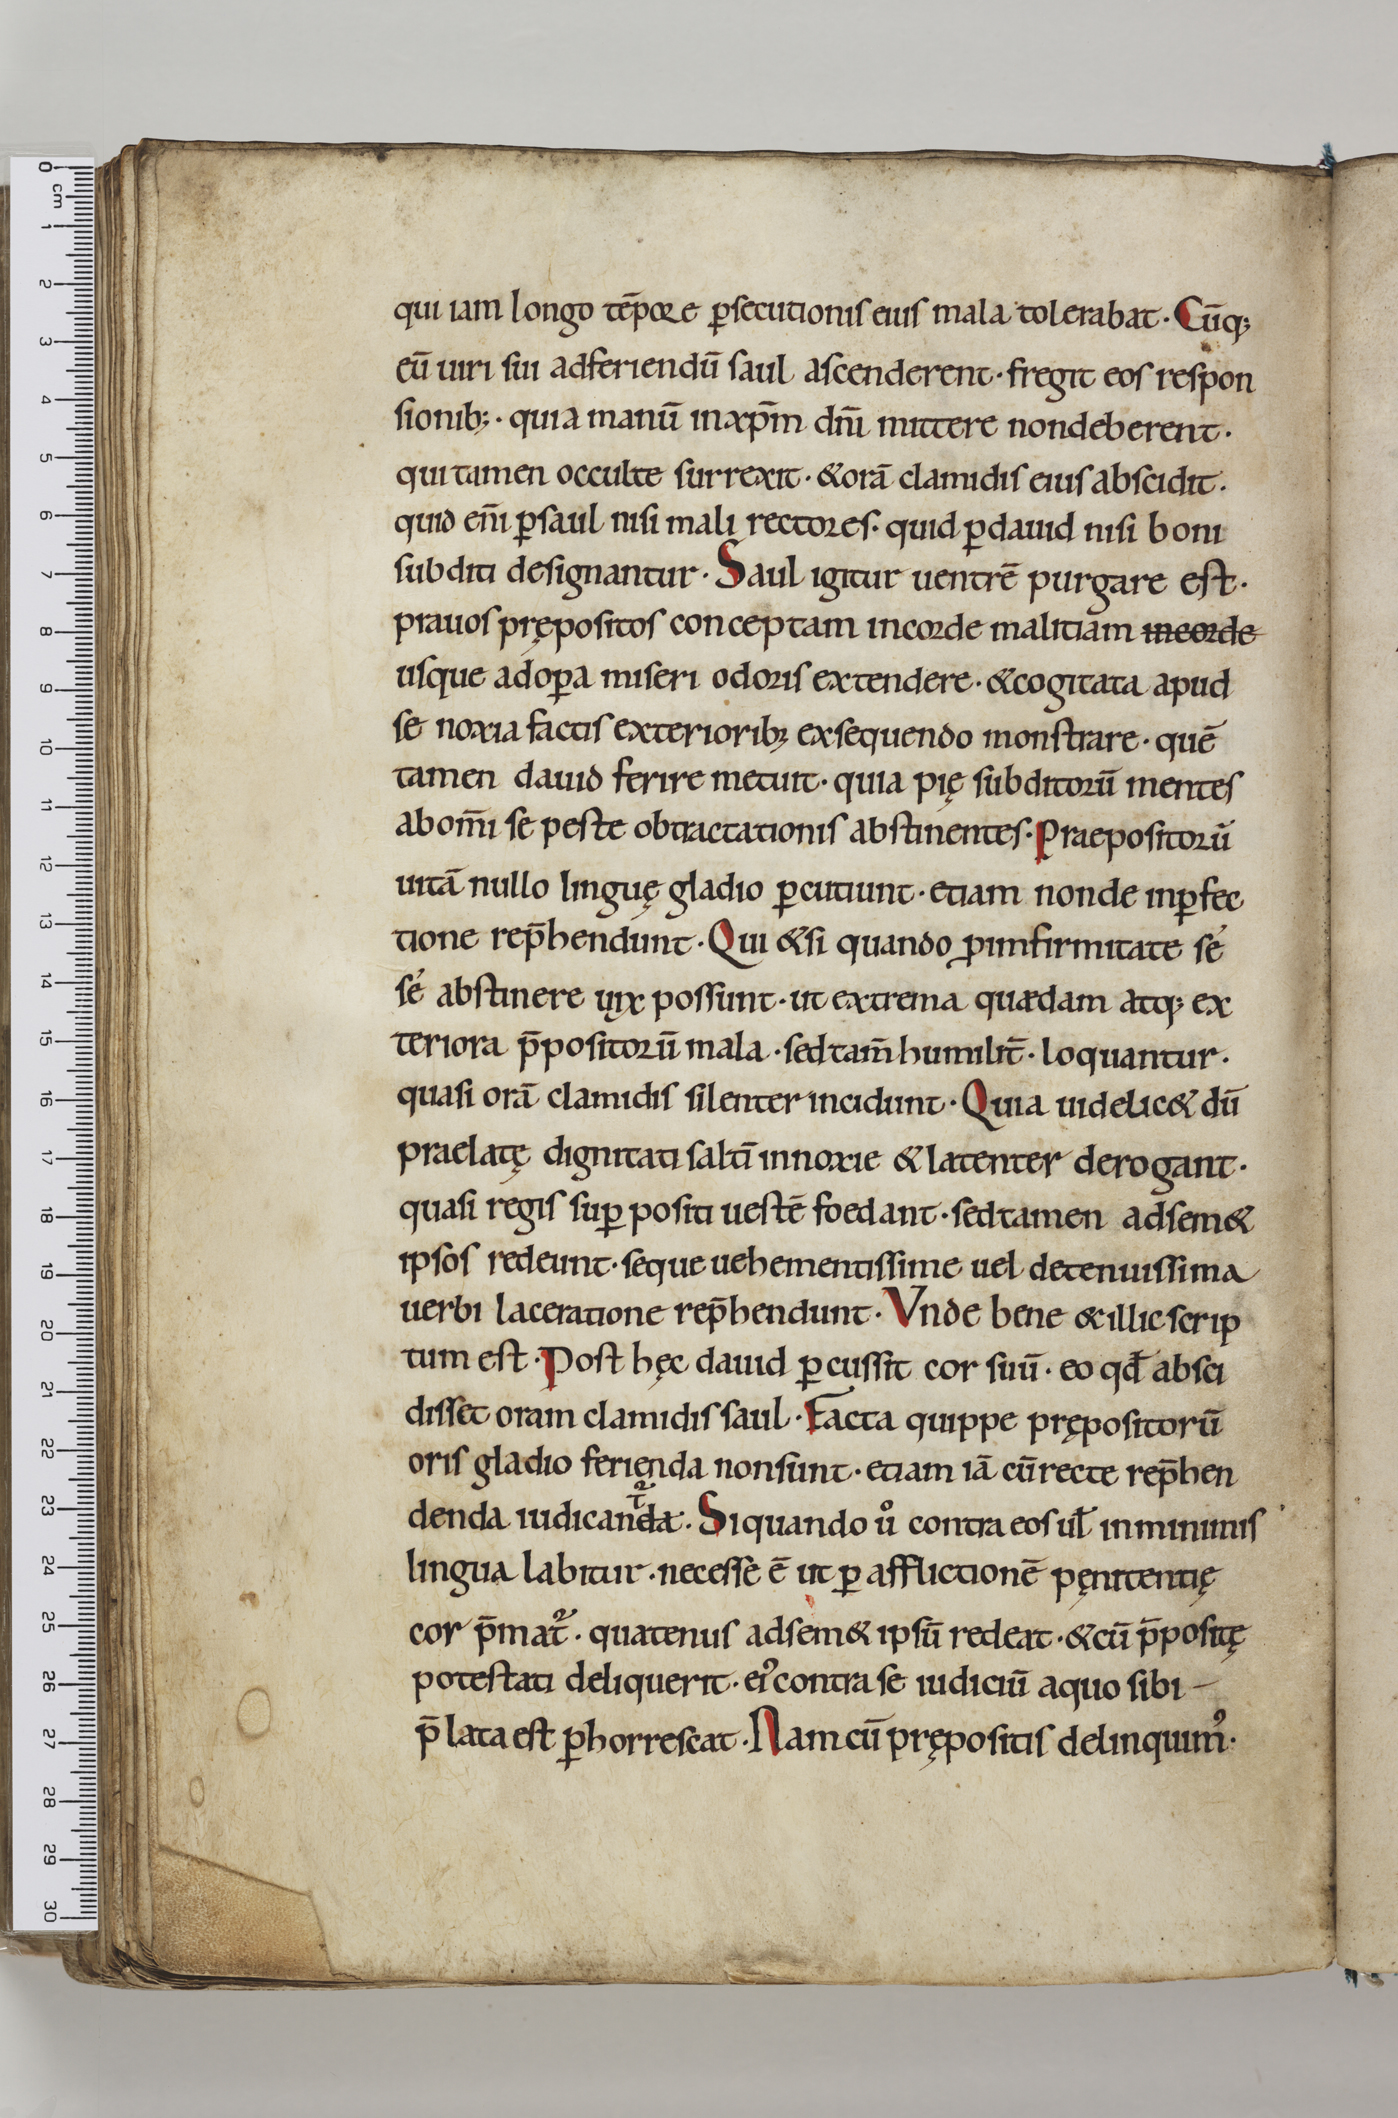 qui iam longo tēpore ꝑsecutionis eius mala tolerabat · Cūq;
eū uiri sui adferiendū saul ascenderent · fregit eos respon
sionib; · quia manū inxp̄m dn̄i mittere nondeberent ·
qui tamen occulte surrexit · &orā clamidis eius abscidit ·
quid en̄i ꝑsaul nisi mali rectores · quid ꝑdauid nisi boni
subditi designantur · Saul igitur uentrē purgare est ·
prauos prępositos conceptam incorde malitiam incorde
usque adoꝑa miseri odoris extendere · &cogitata apud
se noxia factis exteriorib; exsequendo monstrare · quē
tamen dauid ferire metuit · quia pię subditorū mentes
abom̄i se peste obtractationis abstinentes · Praepositorū
uitā nullo linguę gladio ꝑcutiunt · etiam nonde inꝑfec
tione rep̄hendunt · Qui &si quando ꝑinfirmitate sé
sé abstinere uix possunt · ut extrema quædam atq; ex
teriora p̄positorū mala · sedtam̄ humilit̄ · loquantur ·
quasi orā clamidis silenter incidunt · Quia uidelic& dū
praelatę dignitati saltī innoxie &latenter derogant ·
quasi regis suꝑ positi uestē foedant · sedtamen adsem&
ipsos redeunt · seque uehementissime uel detenuissima
uerbi laceratione rep̄hendunt · Vnde bene &illic scrip
tum est · Post hęc dauid ꝑcussit cor suū · eo qđ absci
disset oram clamidis saul · Facta quippe prępositorū
oris gladio ferienda nonsunt · etiam iā cūrecte rep̄hen
denda iudicanda · Siquando uͦ contra eos ul̄ inminimis
lingua labitur · necesse ē ut ꝑ afflictionē pęnitentię
cor p̄mat᷑ · quatenus adsem& ipsū redeat · &cū p̄positę
potestati deliquerit · eiꝰcontra se iudiciū aquo sibi –
p̄lata est ꝑhorrescat · Nam cū prępositis delinquimꝰ ·